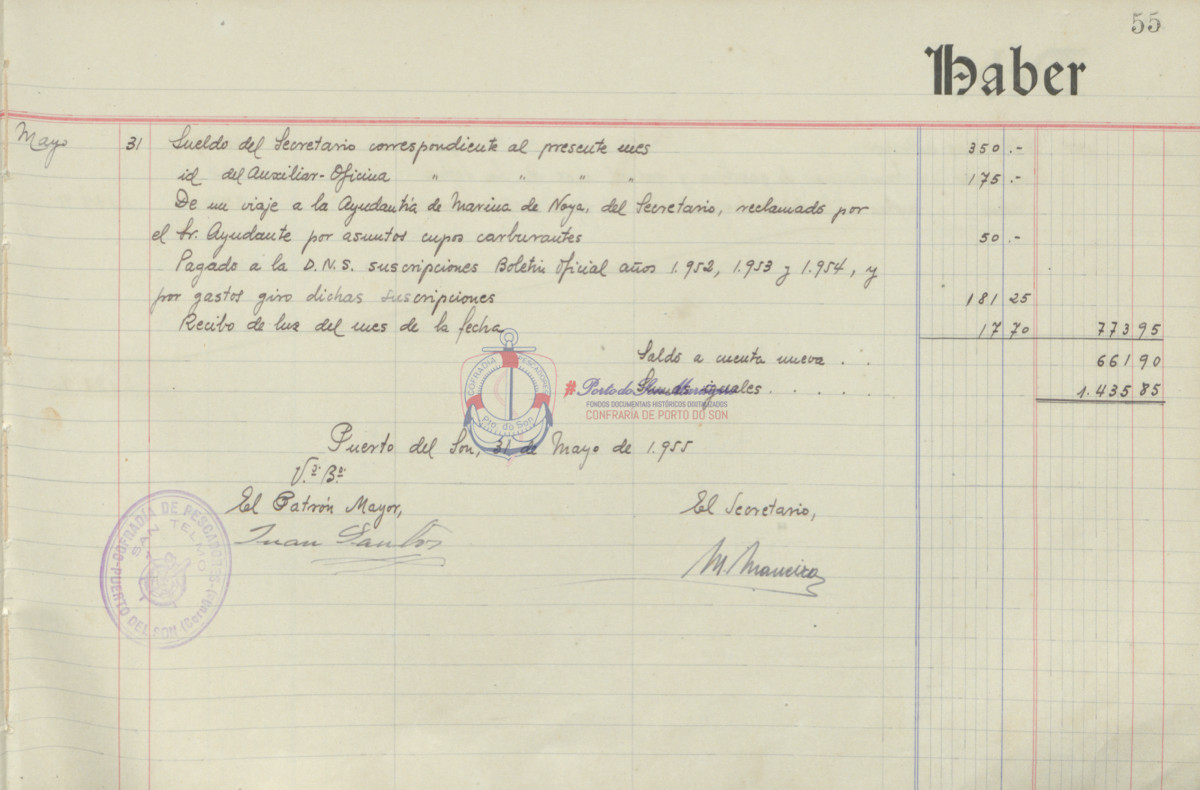 55
Haber
Mayo 31 Sueldo del Secretario correspondiente al presente mes 350.-
id del Auxiliar-Oficina " " " " 175.-
De un viaje a la Ayudantía de Marina de Noya, del Secretario, reclamado por
el Sr. Ayudante por asuntos cupos carburantes 50.-
Pagado a la D.N.S. suscripciones Boletín Oficial años 1.952, 1.953 y 1.954, y
por gastos giro dichas suscripciones 181 25
Recibo de luz del mes de la fecha 17 70 773 95
Saldo a cuenta nueva . . 661 90
Sumas iguales . . . . 1.435 85
COFRADÍA PESCADORES
Pto. do Son
#Portodo
FONDOS DOCUMENTAIS HISTÓRICOS DIXITALIZADOS
CONFRARÍA DE PORTO DO SON
Puerto del Son, 31 de Mayo de 1.955
V.º B.º
El Patrón Mayor,
El Secretario,
Juan Santos
M. Maneiro
COFRADÍA DE PESCADORES
SAN TELMO
PUERTO DEL SON (Coruña)